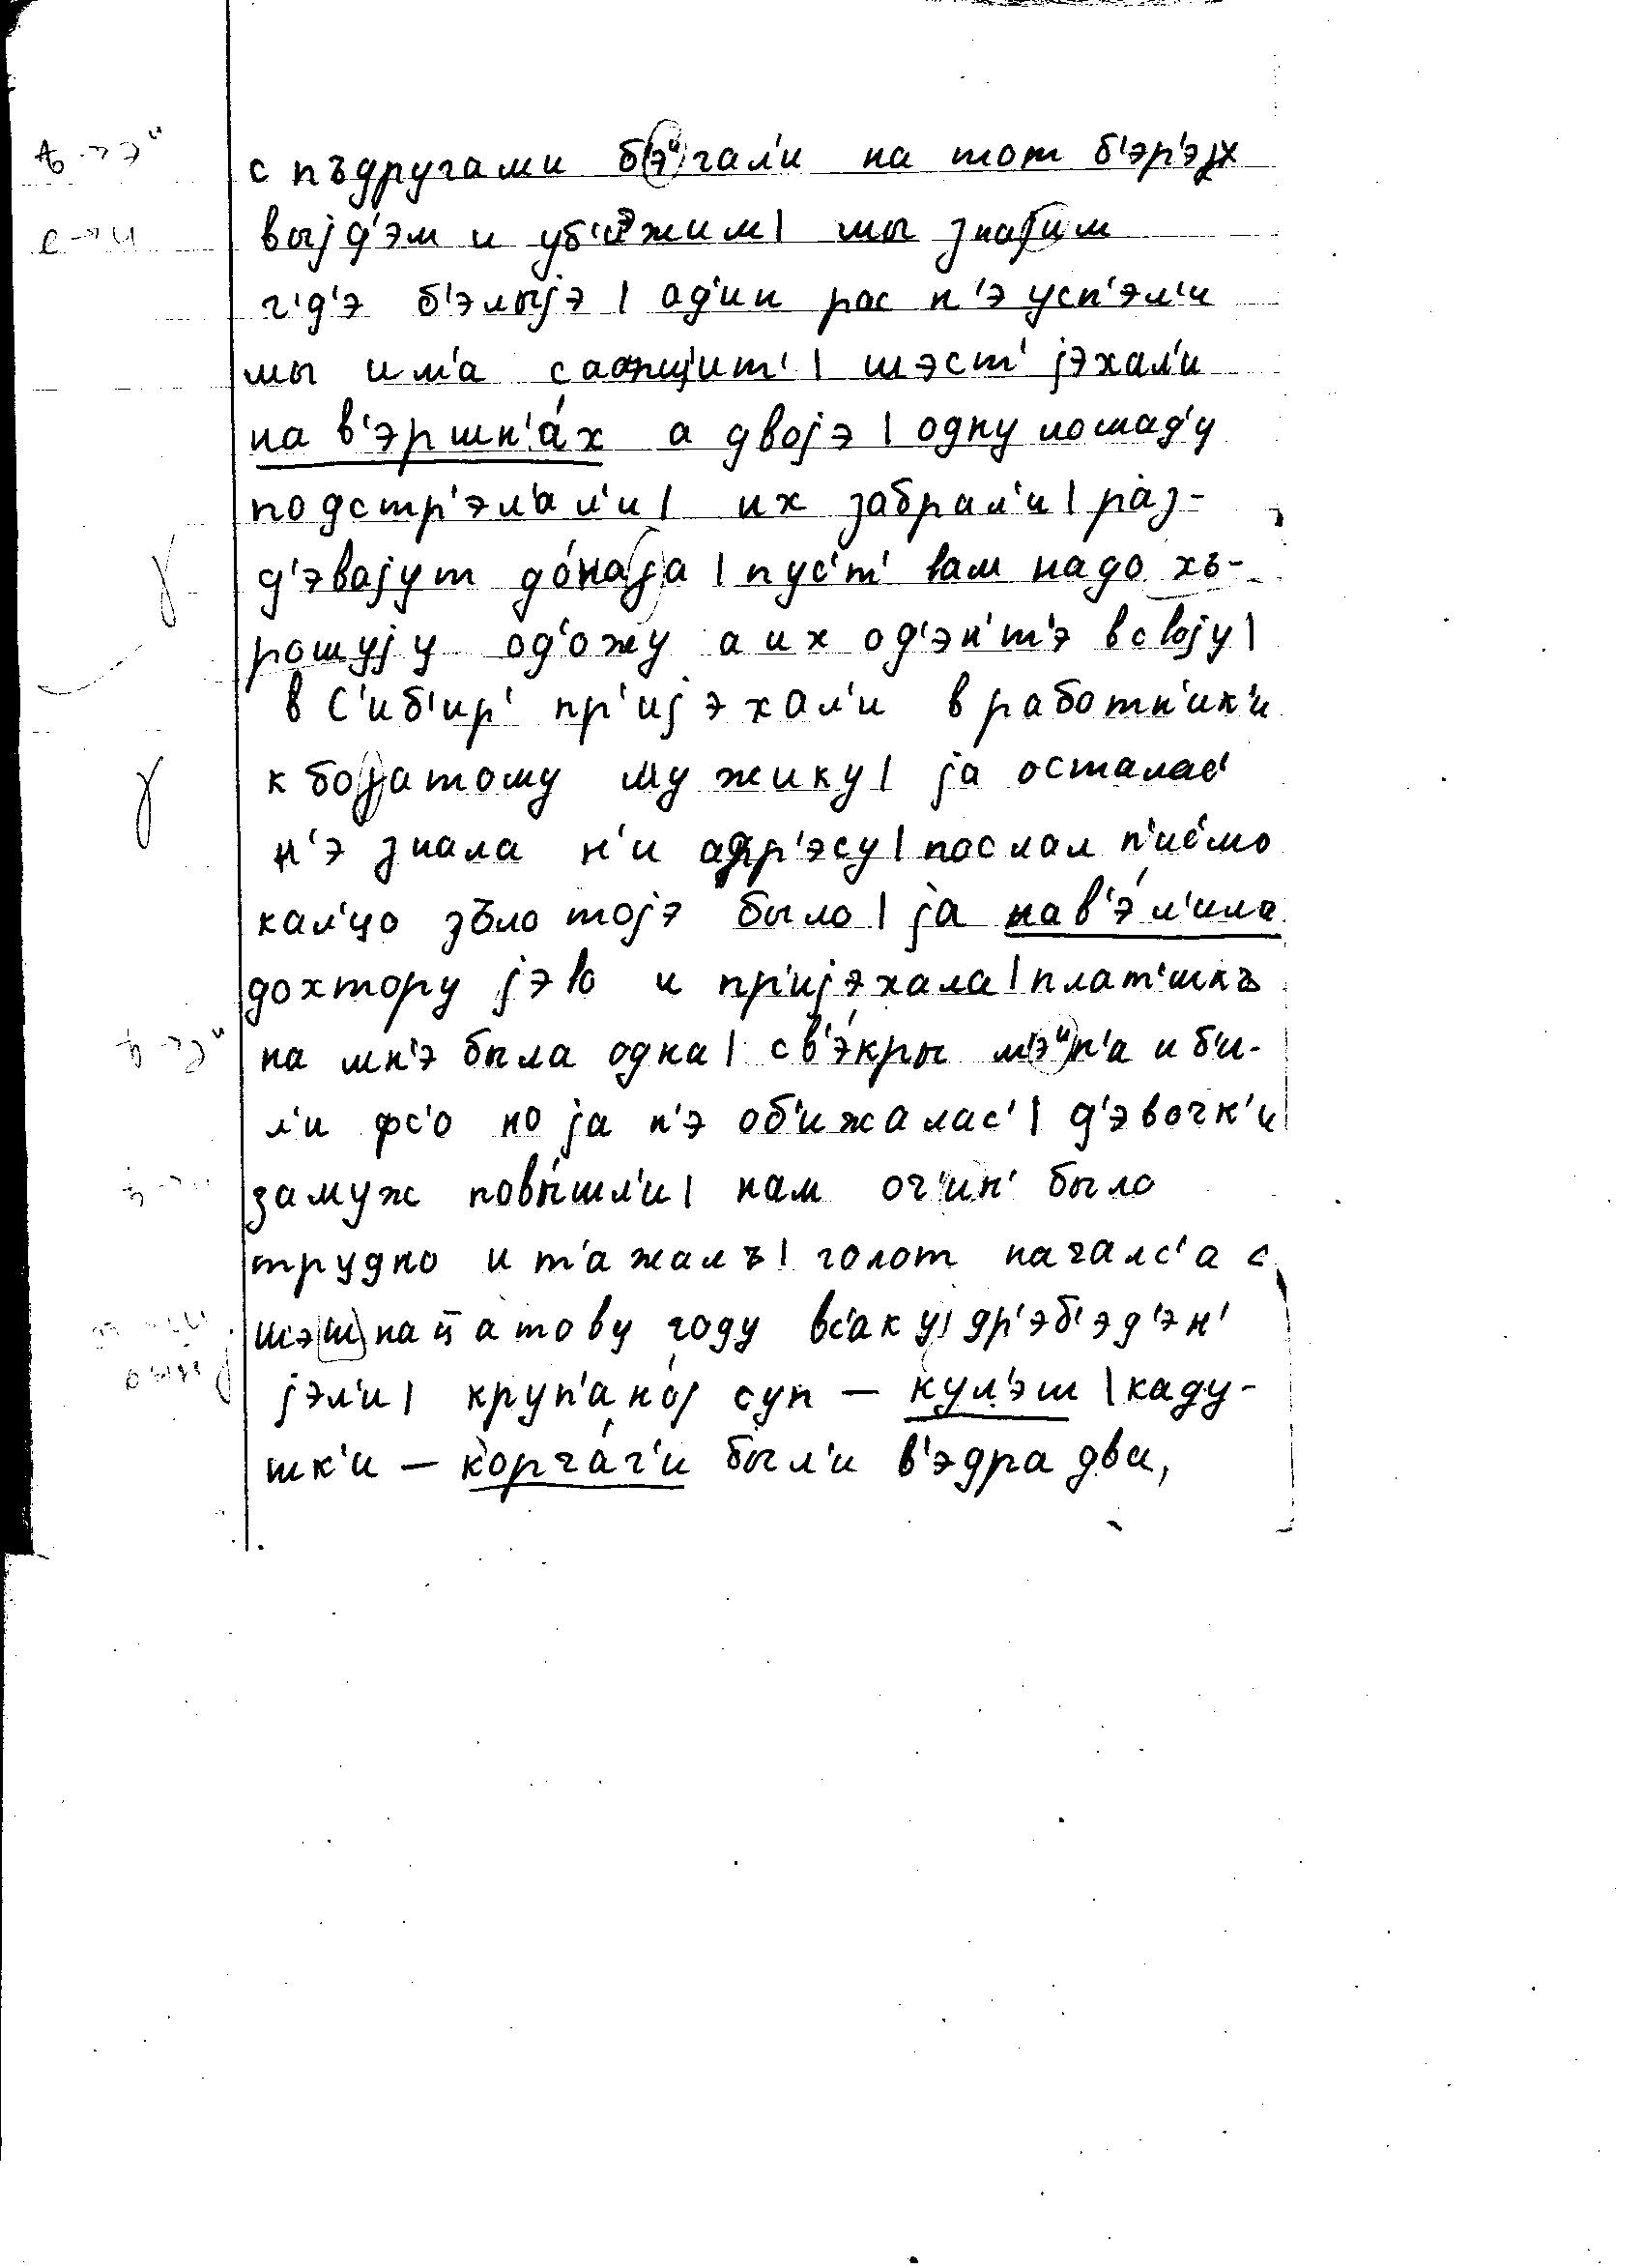 ѣ → эᶦ
с пъдругами б'эᶦгал'и на тот б'эр'эх
е → и
выjд'эм и уб'ижим| мы знаjим
г'д'э б'элыjэ | ад'ин рас н'э усп'эл'и
мы им'а саопщ'ит' | шэст' jэхал'и
на в'эршн'áх а двоjэ | одну лошад'у
подстр'эл'ал'и | их забрал'и | раз-
γ
д'эваjут дóнаγа | пус'т' вам надо хъ-
рошуjу од'ожу а их од'эн'т'э в своју |
в С'иб'ир' пр'иjэхал'и в работн'ик'и
γ
к боγатому мужику | jа осталас'
н'э знала н'и адр'эсу | послал п'ис'мо
кал'цо зъло тоjэ было | jа нав'э́л'ила
дохтору jэво и пр'иjэхала | плат'ишкъ
ѣ → эᶦ
на мн'э была одна | св'э́кры м'эᶦн'а и б'и-
л'и фс'о но jа н'э об'ижалас' | д'эвочк'и
замуж повы́шл'и | нам оч'ин' было
трудно и т'ажалъ | голот начал'са с
шэшнацатову году вс'акуj др'эб'эд'эн'
jэл'и | круп'анój суп – кул'эш | каду-
шк'и – корчáг'и был'и в'эдра два,